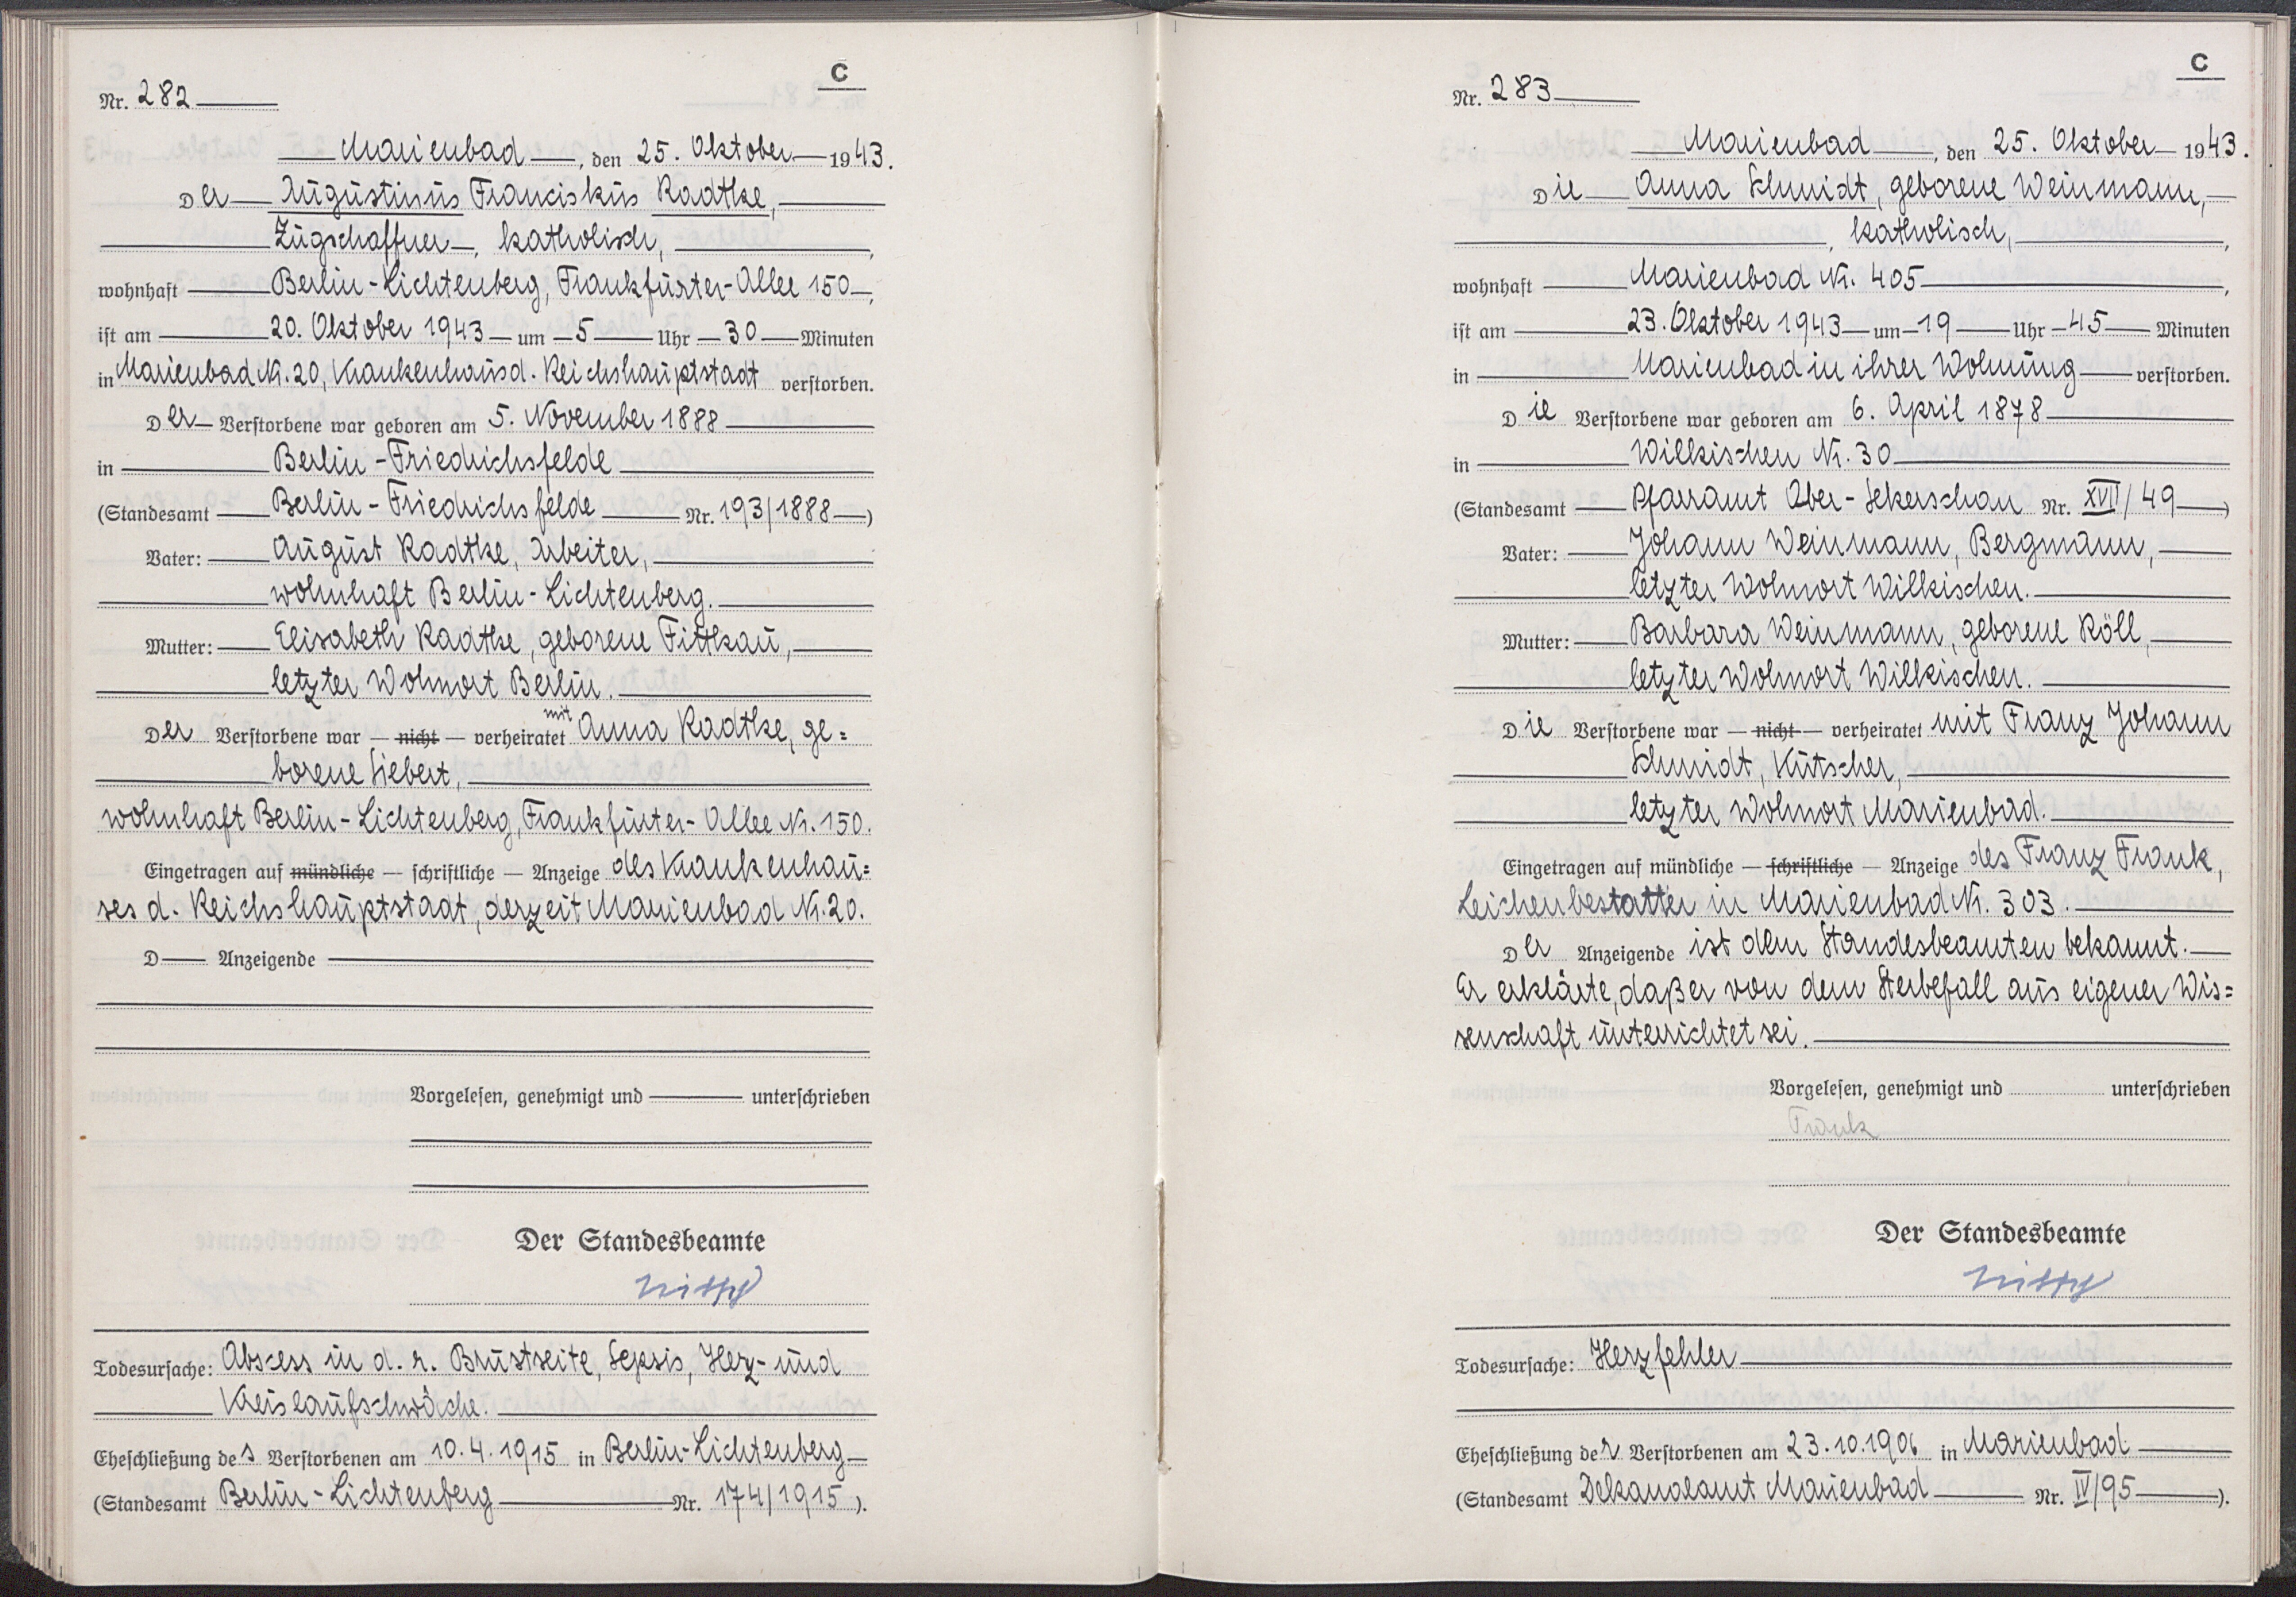 C
Nr. 282
Marienbad, den 25. Oktober 1943.
Der Augustinus Franciskus Radtke,
Zugschaffner, katholisch,
wohnhaft Berlin-Lichtenberg, Frankfurter-Allee 150,
ist am 20. Oktober 1943 um 5 Uhr 30 Minuten
in Marienbad Nr. 20, Krankenhaus d. Reichshauptstadt verstorben.
Der Verstorbene war geboren am 5. November 1888
in Berlin-Friedrichsfelde
(Standesamt Berlin-Friedrichsfelde Nr. 193/1888)
Vater: August Radtke, Arbeiter,
wohnhaft Berlin-Lichtenberg.
Mutter: Elisabeth Radtke, geborene Fittkau,
letzter Wohnort Berlin.
Der Verstorbene war — nicht — verheiratet mit Anna Radtke, ge=
borene Siebert,
wohnhaft Berlin-Lichtenberg, Frankfurter-Allee Nr. 150.
Eingetragen auf mündliche — schriftliche — Anzeige des Krankenhau=
ses d. Reichshauptstadt, derzeit Marienbad Nr. 20.
D Anzeigende
Vorgelesen, genehmigt und unterschrieben
Der Standesbeamte
Todesursache: Abscess in d. r. Brustseite, Sepsis, Herz- und
Kreislaufschwäche.
Eheschließung des Verstorbenen am 10.4.1915 in Berlin-Lichtenberg
(Standesamt Berlin-Lichtenberg Nr. 174/1915).
C
Nr. 283
Marienbad, den 25. Oktober 1943.
Die Anna Schmidt, geborene Weinmann,
, katholisch,
wohnhaft Marienbad Nr. 405,
ist am 23. Oktober 1943 um 19 Uhr 45 Minuten
in Marienbad in ihrer Wohnung verstorben.
Die Verstorbene war geboren am 6. April 1878
in Wilkischen Nr. 30
(Standesamt Pfarramt Ober-Sekerschan Nr. XVII/49)
Vater: Johann Weinmann, Bergmann,
letzter Wohnort Wilkischen.
Mutter: Barbara Weinmann, geborene Köll,
letzter Wohnort Wilkischen.
Die Verstorbene war — nicht — verheiratet mit Franz Johann
Schmidt, Kutscher,
letzter Wohnort Marienbad.
Eingetragen auf mündliche — schriftliche — Anzeige des Franz Frank,
Leichenbestatter in Marienbad Nr. 303.
Der Anzeigende ist dem Standesbeamten bekannt.
Er erklärte, daß er von dem Sterbefall aus eigener Wis=
senschaft unterrichtet sei.
Vorgelesen, genehmigt und unterschrieben
Frank
Der Standesbeamte
Todesursache: Herzfehler
Eheschließung der Verstorbenen am 23.10.1906 in Marienbad
(Standesamt Dekanalamt Marienbad Nr. IV/95).